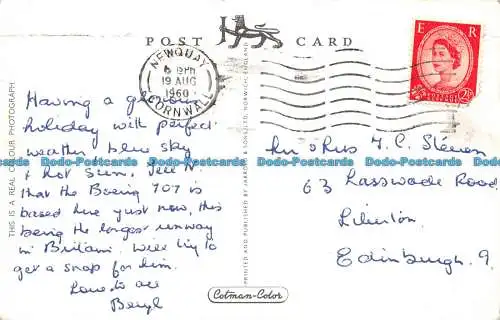 POST CARD
E R
NEWQUAY
6 15PM
19 AUG
1960
CORNWALL
POSTAGE
2½D
THIS IS A REAL COLOUR PHOTOGRAPH
Having a glorious
holiday with perfect
weather blue sky
& hot sun. Tell
that the Boeing 707 is
based here just now, this
being the longest runway
in Britain. Will try to
get a snap for him.
Love to all
Beryl
PRINTED AND PUBLISHED BY JARROLD & SONS LTD, NORWICH, ENGLAND
Mr & Mrs H. C. Steven
63 Lasswade Road
Liberton
Edinburgh. 9.
Cotman-Color
Dodo-Postcards Dodo-Postcards Dodo-Postcards Dodo-Postcards Dodo-Postcards